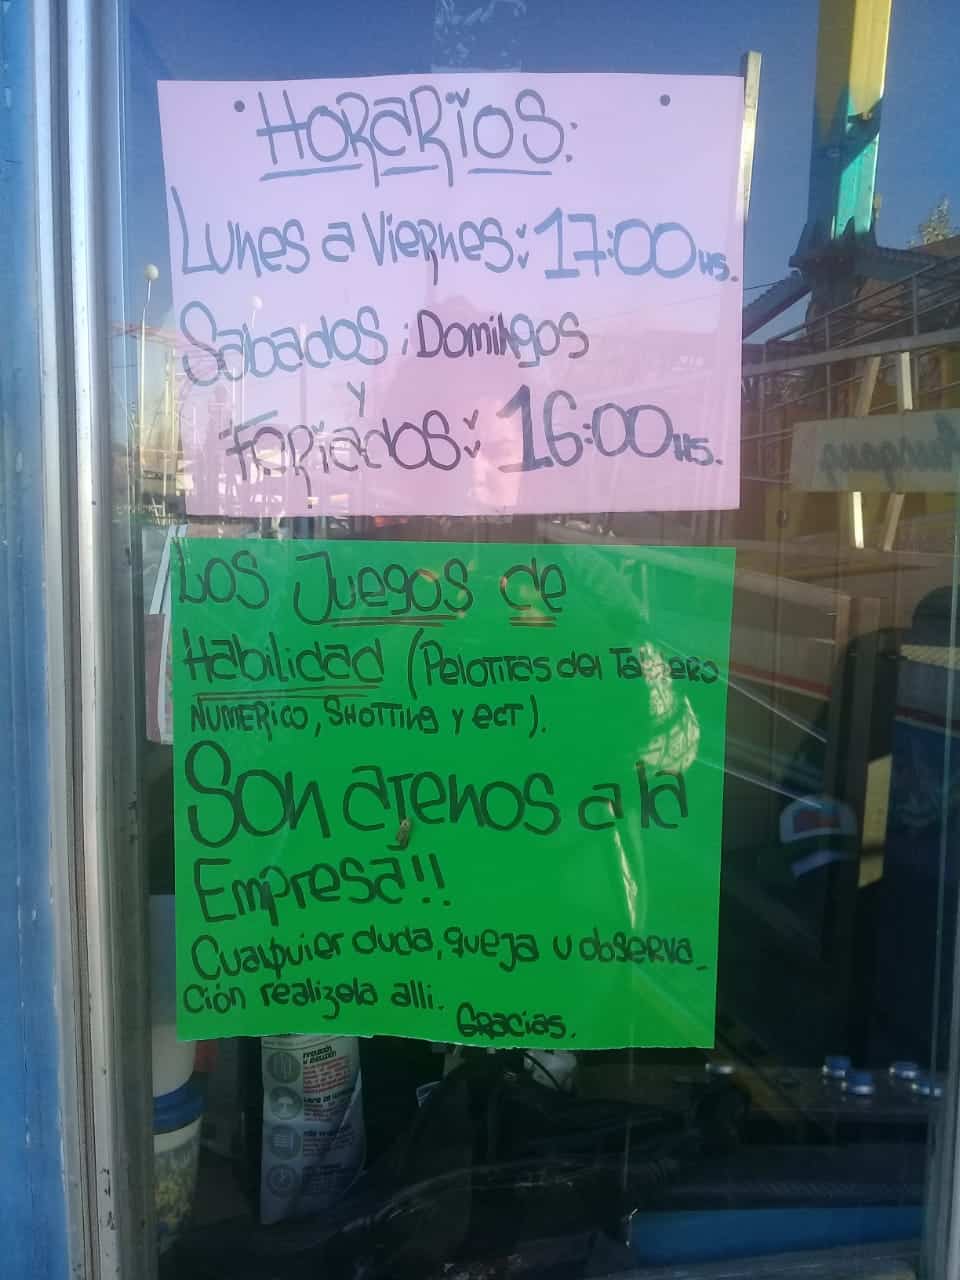 HORARIOS:
LUNES a VIERNES: 17:00 HS.
Sabados ; Domingos
y
FERIADOS: 16:00 HS.
Los Juegos de
Habilidad (PELOTITAS del TABLERO
NUMERICO, SHOTTING y ECT).
Son ajenos a la
Empresa!!
Cualquier duda, queja u observa_
ción realizela alli.
Gracias.